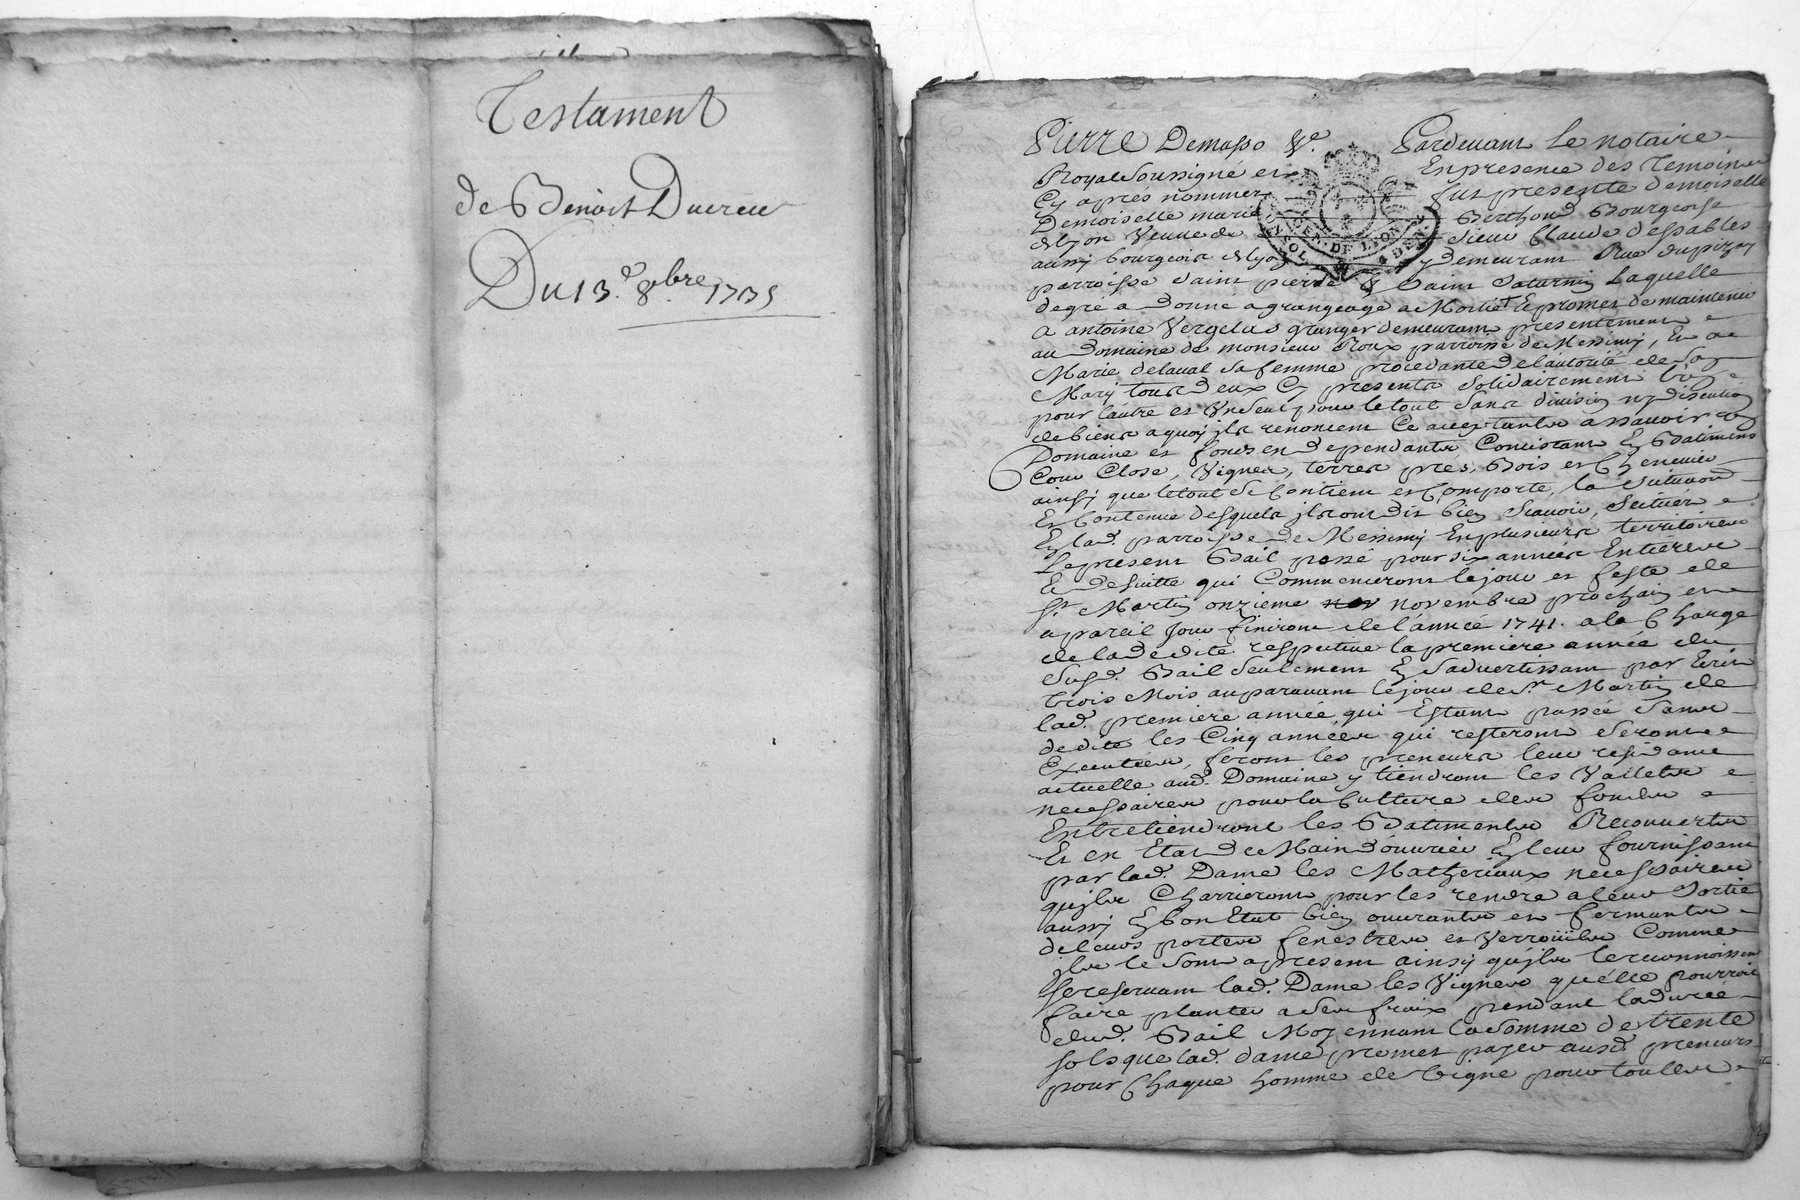 Testament
de Benoist Ducreu
Du 13.e 8.bre 1735
Pardevant Le notaire
Royal Soussigné et En presence des Temoins
Cy aprés nommez fut presente demoiselle
Demoiselle marie Berthoud Bourgeoise
de lyon Veuve de Sieur Claude
aussy bourgeois de lyon y demeurant Rue
parroisse saint pierre & Saint Saturnin Laquelle
degré a donné a grangeage a Moitié & promet de maintenir
a antoine Vergelas granger demeurant presentement
au Domaine de monsieur Roux parroisse de Messimy, Et a
Marie delaval sa femme procedante de l'autorité de Son
Mary tous deux Cy presents Solidairement L'un
pour l'autre et Un Seul pour le tout Sans division ny discution
de biens a quoy ils renoncent Ce acceptants assavoir un
Domaine et fonds en dependants Consistant En Batimens
Cour Close, Vignes, terres prés, Bois et Chenevier
ainsy que le tout Se Contient et Comporte, la Situation
Et Contenue desquels ils ont dit bien Scavoir, Scituez
En lad. parroisse de Messimy En plusieurs territoires
Le present Bail passé pour six années Entieres
Et de suitte qui Commenceront le jour et feste de
St. Martin onzieme novembre prochain et
a pareil Jour finiront de l'année 1741. a la Charge
de la dedite respective la premiere année du
Susd. Bail Seulement En S'advertissant par Ecrit
trois Mois auparavant le jour de St. Martin de
lad. premiere année qui Estant passée Sans
dedite les Cinq années qui resteront Seront
Executées, feront les preneurs leur residance
actuelle aud. Domaine y tiendront les Vallets
necessaires pour la Culture des fonds
Entretiendront les Batiments Recouverts
Et en Etat de Main d'ouvrier En leur fournissant
par lad. Dame les Matheriaux necessaires
qu'ils Charrieront pour les rendre a leur Sortie
aussy En bon Etat bien ouvrants et fermants
de leurs portes fenestres et Verrouils Comme
ils le Sont a present ainsy qu'ils le reconnoissent
Se reservant lad. Dame les Vignes qu'elle pourroit
faire planter a Ses fraix pendant la durée
dud. Bail Moyennant la Somme de trente
sols que lad. dame promet payer ausd. preneurs
pour Chaque homme de Vigne pour toutes